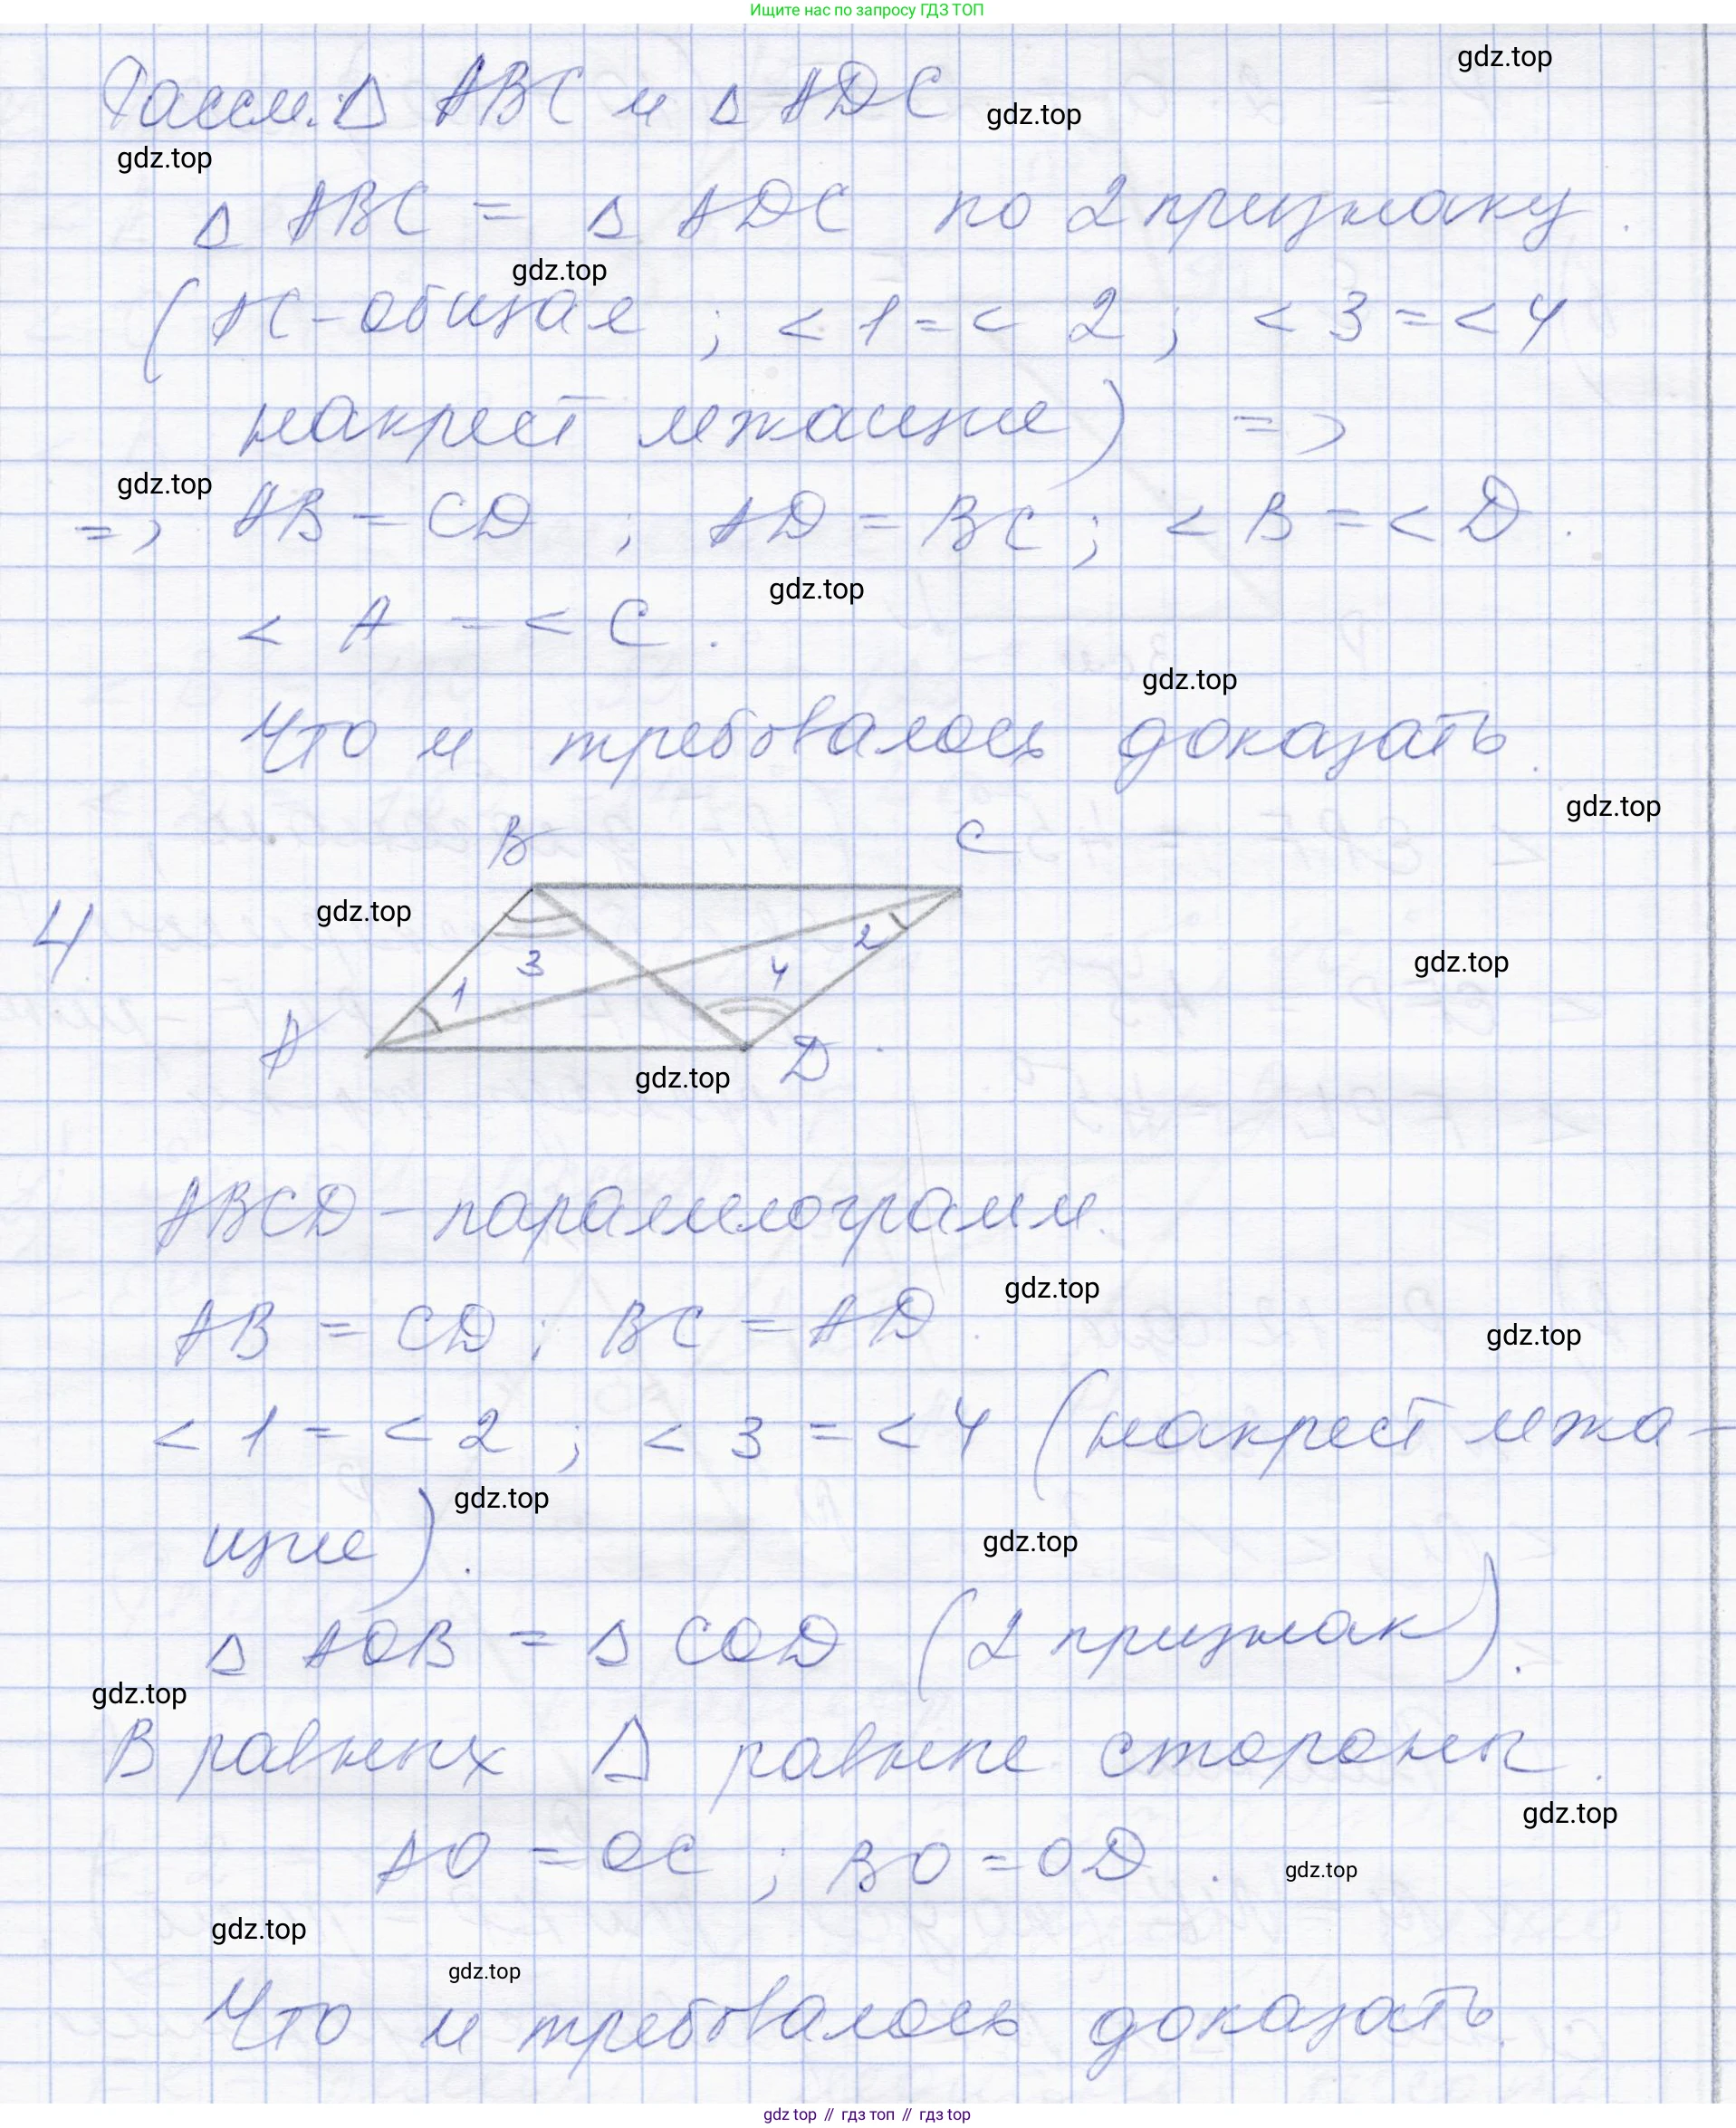 Ищите нас по запросу ГДЗ ТОП
gdz.top
Рассм. Δ ABC и Δ ADC
gdz.top
gdz.top
Δ ABC = Δ ADC по 2 признаку.
gdz.top
(AC - общая ; < 1 = < 2 ; < 3 = < 4
накрест лежащие) =>
gdz.top
=> AB = CD ; AD = BC ; < B = < D .
gdz.top
< A = < C .
gdz.top
Что и требовалось доказать.
gdz.top
B C
4 gdz.top
3 2 4 gdz.top
1
A D
gdz.top
ABCD - параллелограмм.
gdz.top
AB = CD ; BC = AD .
gdz.top
< 1 = < 2 ; < 3 = < 4 (накрест лежа-
gdz.top
щие).
gdz.top
Δ AOB = Δ COD (2 признак).
gdz.top
В равных Δ равные стороны.
gdz.top
AO = OC ; BO = OD .
gdz.top
gdz.top
gdz.top
Что и требовалось доказать.
gdz top // гдз топ // гдз top